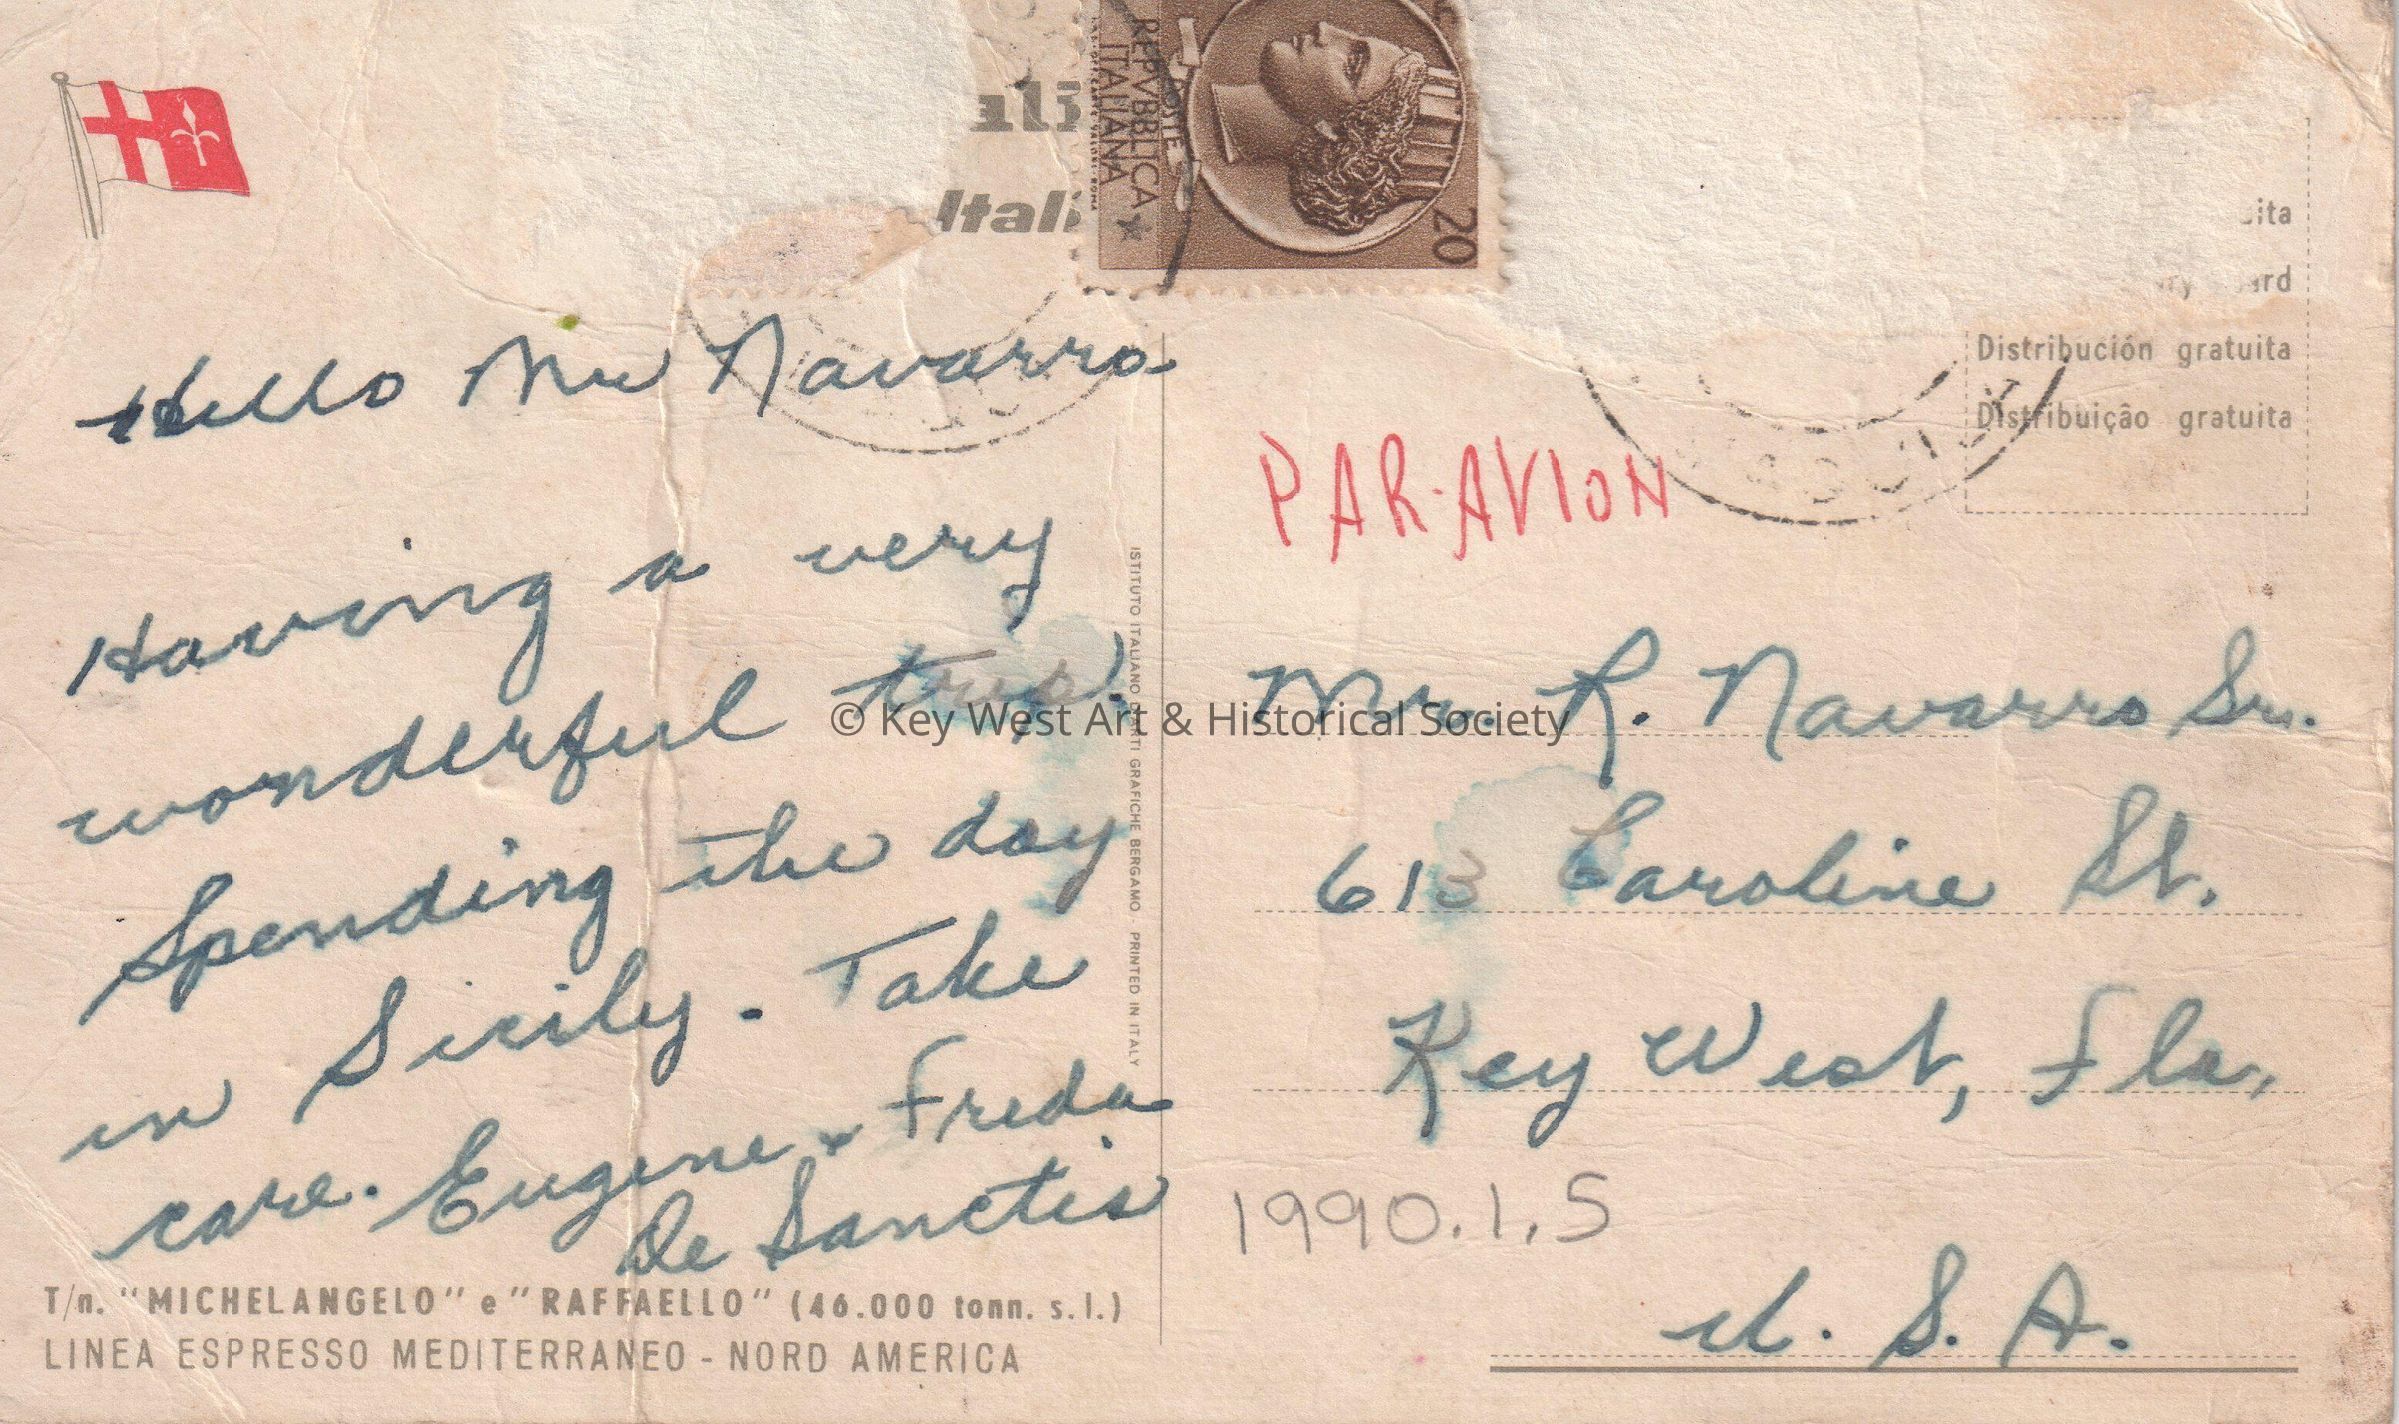 Hello Mr Navarro
Having a very
wonderful trip.
Spending the day
in Sicily. Take
care. Eugene & Freda
De Sanctis
T/n. "MICHELANGELO" e "RAFFAELLO" (46.000 tonn. s.l.)
LINEA ESPRESSO MEDITERRANEO - NORD AMERICA
ISTITUTO ITALIANO GRAFICHE BERGAMO - PRINTED IN ITALY
REPVBBLICA
ITALIANA
POSTE
20
Distribución gratuita
Distribuição gratuita
PAR-AVION
Mr. R. Navarro Sr.
613 Caroline St.
Key West, Fla.
1990.1.5
U.S.A.
© Key West Art & Historical Society